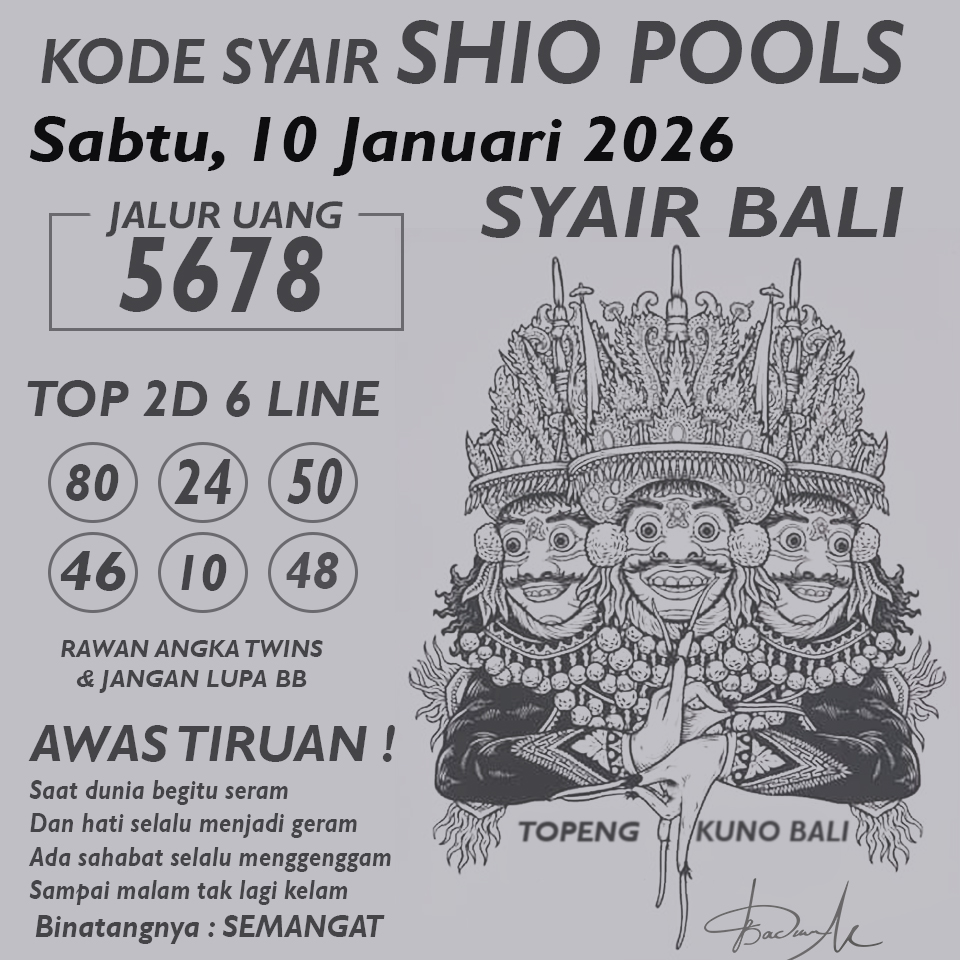 KODE SYAIR SHIO POOLS
Sabtu, 10 Januari 2026
SYAIR BALI
JALUR UANG
5678
TOP 2D 6 LINE
80 24 50
46 10 48
RAWAN ANGKA TWINS
& JANGAN LUPA BB
AWAS TIRUAN !
Saat dunia begitu seram
Dan hati selalu menjadi geram
Ada sahabat selalu menggenggam
Sampai malam tak lagi kelam
Binatangnya : SEMANGAT
TOPENG KUNO BALI